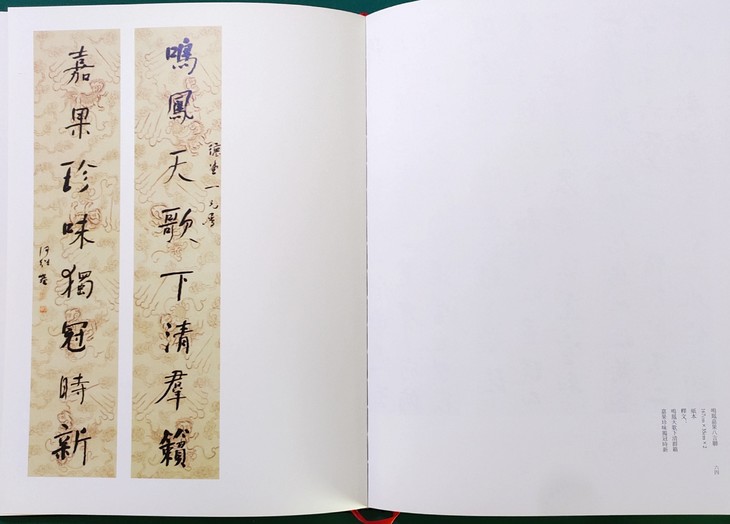 鳴鳳天歌下清羣籟
一元
嘉果珍味獨冠時新
何紹基
鳴鳳嘉果八言聯
紙本
釋文:
鳴鳳天歌下清群籟
嘉果珍味獨冠時新
六四